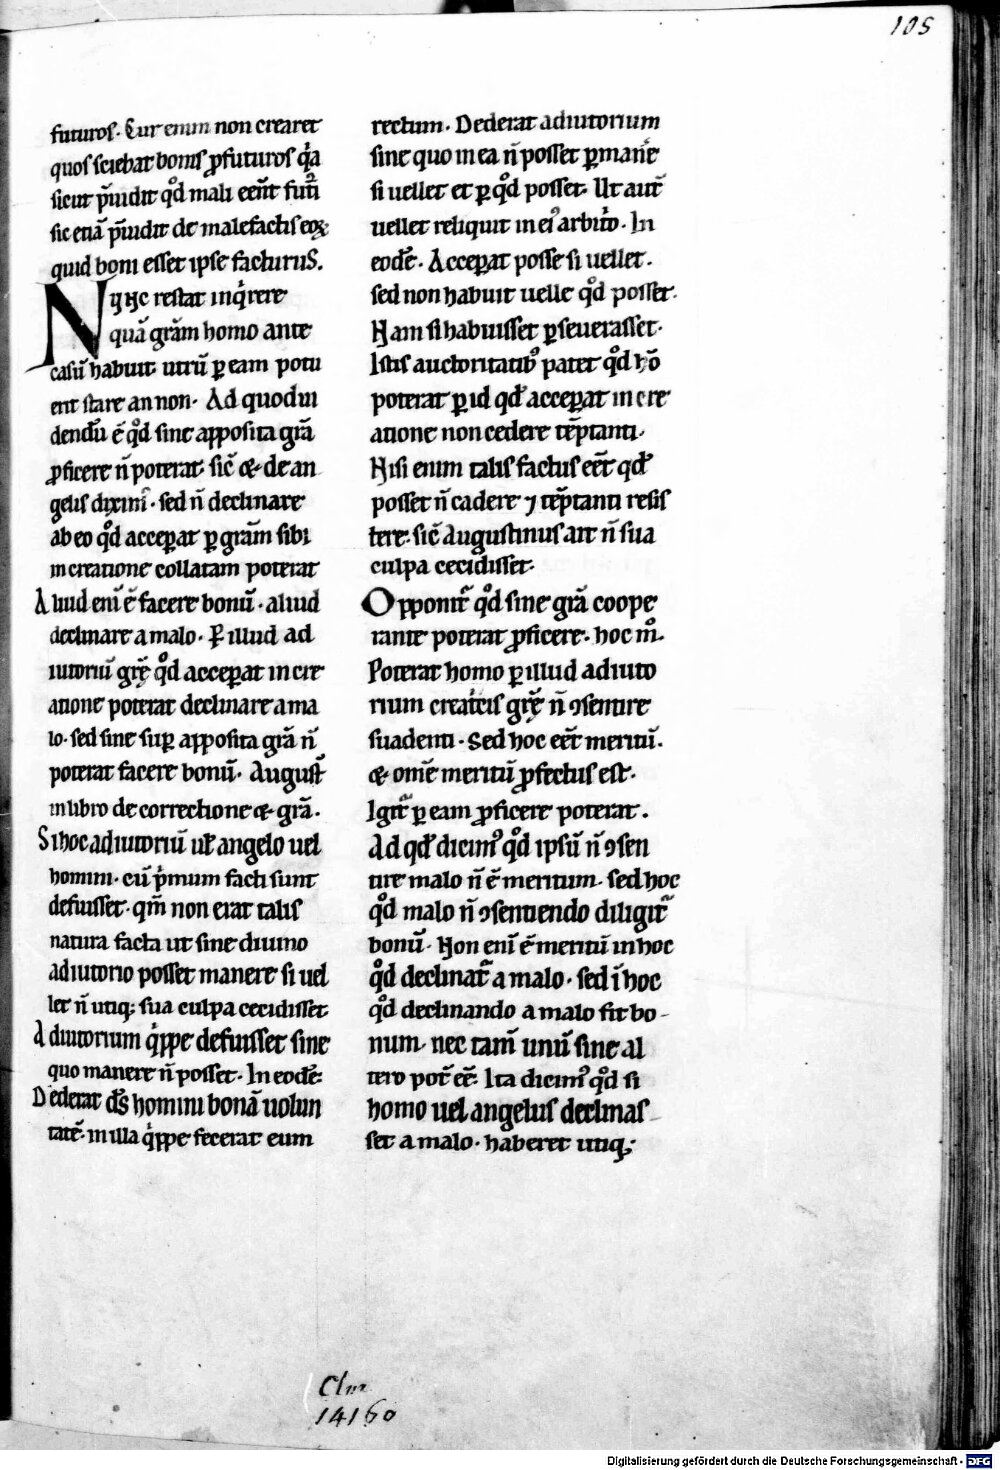 105
futuros. Cur enim non crearet
quos sciebat bonis ꝓfuturos qͥa
sicut p̄uidit qͦd mali eēnt futͥri
sic etiā p̄uidit de malefactis eoꝝ
quid boni esset ipse facturus.
Nunc restat inqͥrere
quā grām homo ante
casū habuit. utrū ꝑ eam potu
erit stare an non. Ad quod ui
dendū ē qͦd sine apposita grā
ꝓficere n̄ poterat. sic̄ & de an
gelis diximꝰ. sed n̄ declinare
ab eo qͦd acceꝑat ꝑ grām sibi
in creatione collatam poterat
Aliud enī ē facere bonū. aliud
declinare a malo. Ꝑ illud ad
iutoriū grē qͦd acceꝑat in cre
atione poterat declinare a ma
lo. sed sine suꝑ apposita grā n̄
poterat facere bonū. August̄
in libro de correctione & grā.
Si hoc adiutoriū ul̄ angelo uel
homini. cū pͥmum facti sunt
defuisset. qm̄ non erat talis
natura facta ut sine diuino
adiutorio posset manere si uel
let n̄ utiq; sua culpa cecidisset
Adiutorium qͥppe defuisset sine
quo manere n̄ posset. In eodē:
Dederat ds̄ homini bonā uolun
tatē. in illa qͥppe fecerat eum
rectum. Dederat adiutorium
sine quo in ea n̄ posset ꝑmanēe
si uellet et ꝑ qͦd posset. Ut aut̄
uellet reliquit in eiꝰ arbitͥo. In
eodē. Acceꝑat posse si uellet.
sed non habuit uelle qͦd posset.
Nam si habuisset ꝑseuerasset.
Istis auctoritatibꝰ patet qͦd hō
poterat ꝑ id qd̄ acceꝑat in cre
atione non cedere tēptanti.
Nisi enim talis factus eēt qd̄
posset n̄ cadere ⁊ tēptanti resis
tere. sic̄ Augustinus ait n̄ sua
culpa cecidisset.
Opponit̄ qͦd sine grā coope
rante poterat ꝓficere. hoc mͦ.
Poterat homo ꝑ illud adiuto
rium creatͥcis grē n̄ ↄsentire
suadenti. Sed hoc eēt meritū.
& om̄e meritū ꝓfectus est.
Igit̄ ꝑ eam ꝓficere poterat.
Ad qd̄ dicimꝰ qͦd ipsū n̄ ↄsen
tire malo n̄ ē meritum. sed hoc
qͦd malo n̄ ↄsentiendo diligit̄
bonū. Non enī ē meritū in hoc
qͦd declinat̄ a malo. sed ī hoc
qͦd declinando a malo fit bo-
num. nec tam̄ unū sine al
tero pot̄ eē. Ita dicimꝰ qͦd si
homo uel angelus declinas
set a malo. haberet utiq;
Clm
14160
Digitalisierung gefördert durch die Deutsche Forschungsgemeinschaft - DFG